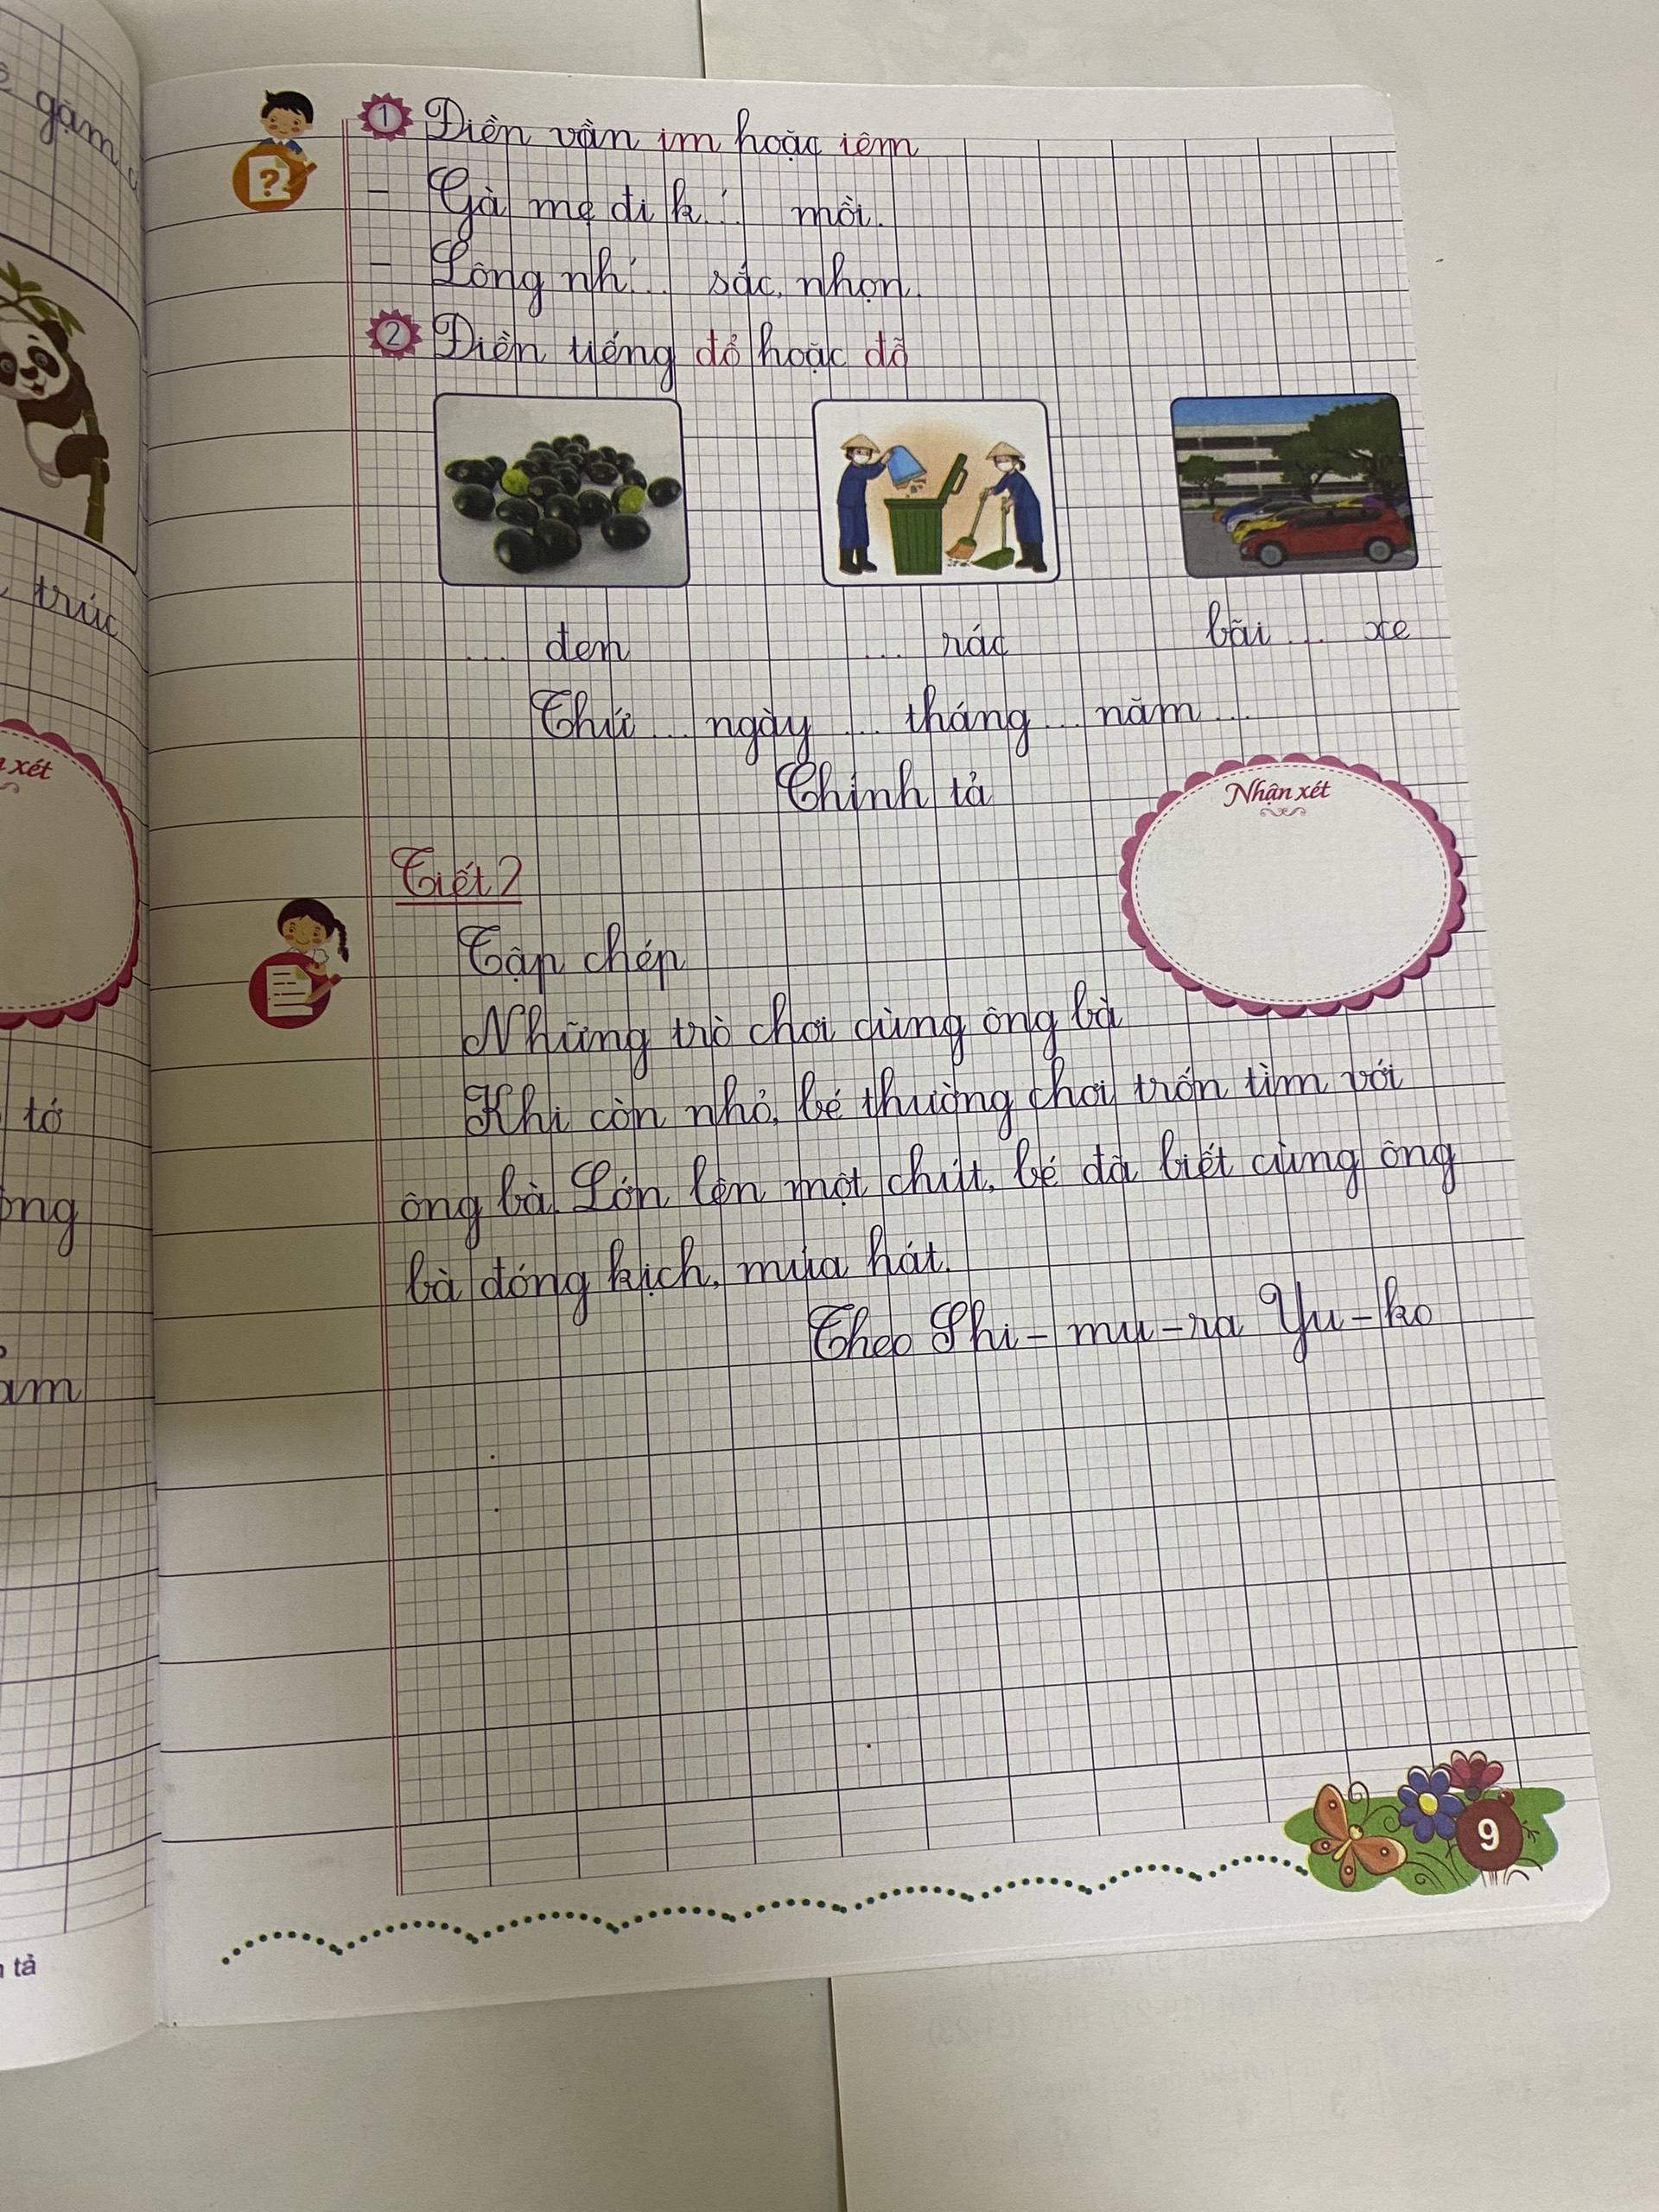 gặm c
trúc
xét
tớ
ông
am
tả
1 Điền vần im hoặc iêm
- Gà mẹ đi k... mồi.
- Lông nh... sắc, nhọn.
2 Điền tiếng đổ hoặc đỗ
... đen
... rác
bãi ... xe
Thứ ... ngày ... tháng ... năm ...
Chính tả
Nhận xét
Tiết 2
Tập chép
Những trò chơi cùng ông bà
Khi còn nhỏ, bé thường chơi trốn tìm với
ông bà. Lớn lên một chút, bé đã biết cùng ông
bà đóng kịch, múa hát.
Theo Shi-mu-ra Yu-ko
9